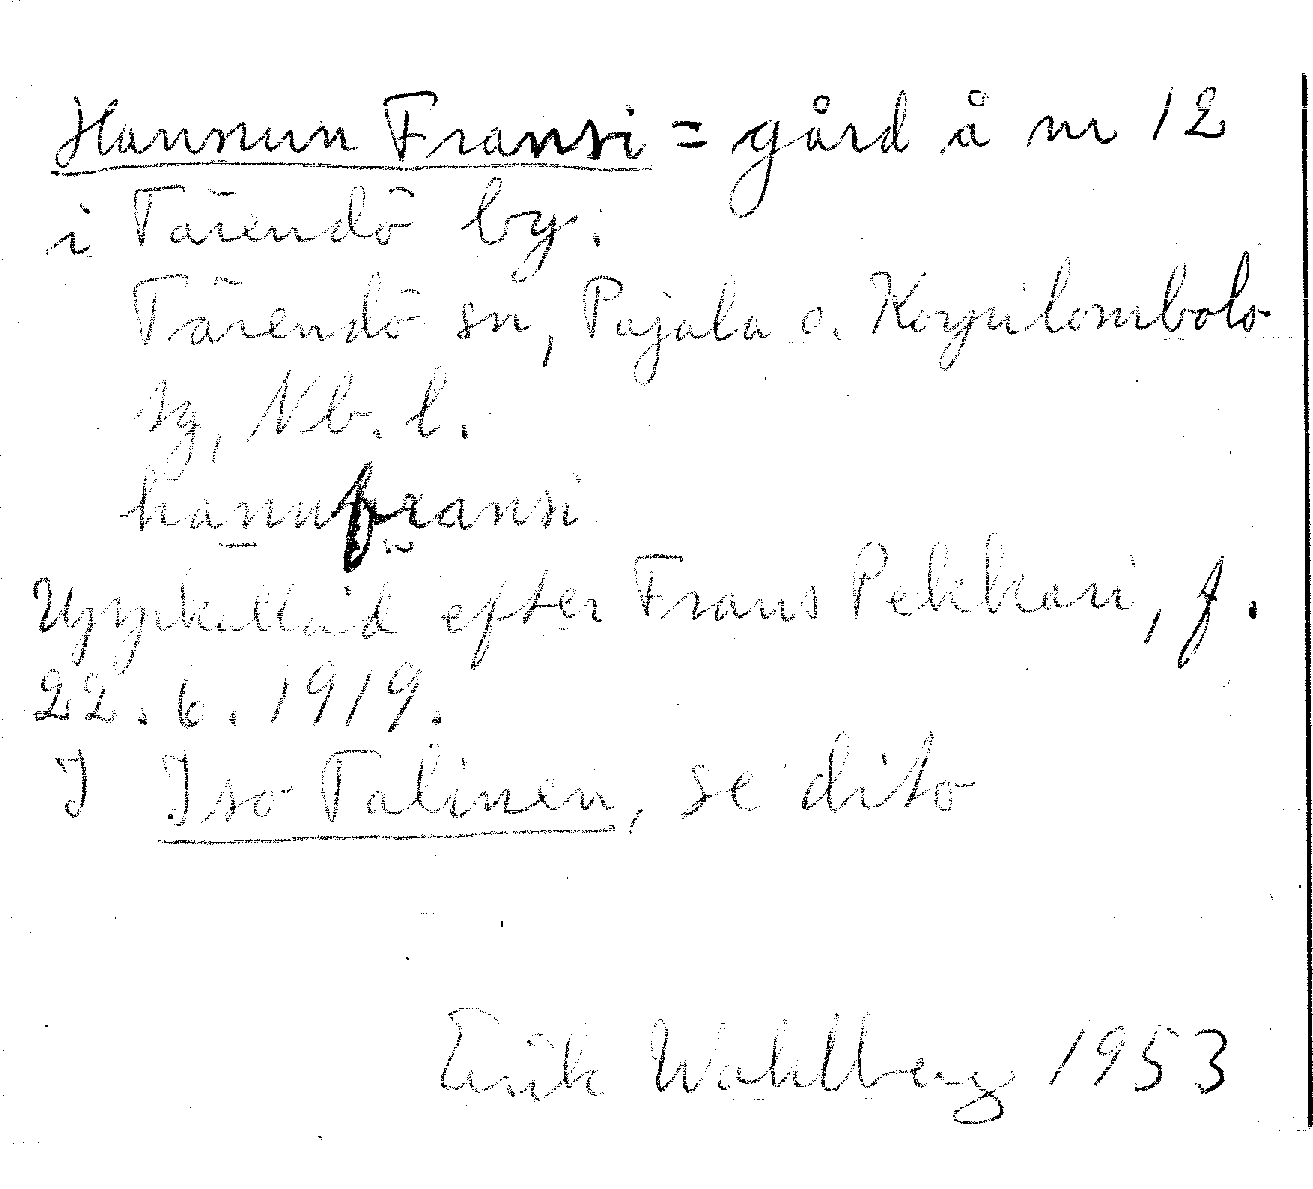 Hannun Fransi = gård å nr 12
i Tärendö by.
Tärendö sn, Pajala o. Korpilombolo
sg, Nb. l.
hanufransi
Uppkallad efter Frans Pekkari, f.
22.6.1919.
I Iso Talinen, se dito
Erik Wahlberg 1953